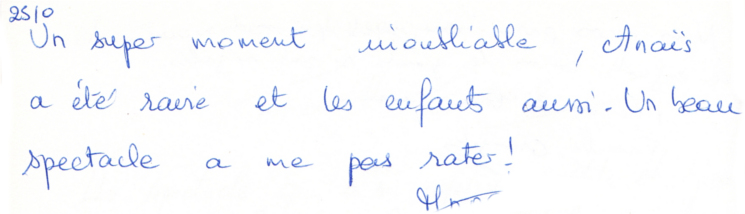 25/0
Un super moment inoubliable, Anaïs
a été ravie et les enfants aussi. Un beau
spectacle a ne pas rater!